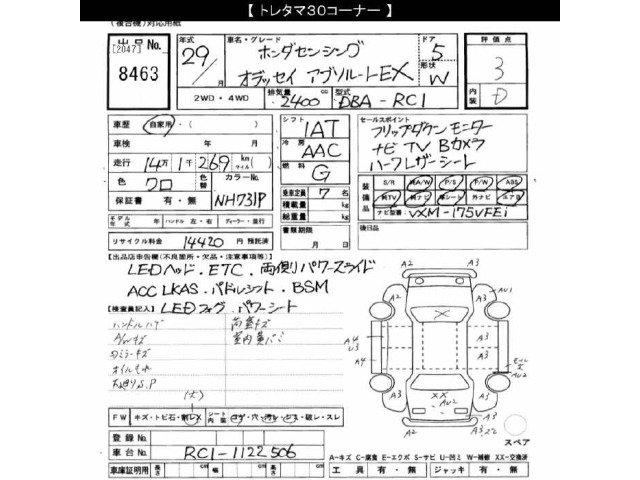 【 トレタマ30コーナー 】
(複合機)対応用紙
出品No.
[2047]
8463
年式
29/月
車名・グレード
ホンダセンシング
オデッセイ アブソルートEX
ドア
5
形状
W
評価点
3
内装
D
2WD・4WD
排気量
2400 cc
型式
DBA-RC1
車歴 自家用・( )
車検 年 月
走行 14万1千269 km マイル ( )
色 クロ
色替
カラーNo. NH731P
保証書 有・無
モデル年式 年 ハンドル 左・右 ディーラー・並行
リサイクル料金 14420 円 預託済
シフト
IAT
冷房
AAC
燃料
G
乗車定員 7 名
積載量 kg
総重量 kg
書類期限
月 日
セールスポイント
フリップダウンモニター
ナビ TV Bカメラ
ハーフレザーシート
装備品
S/R A/W P/S P/W ABS
純TV 純ナビ 革シート 外ナビ エアB
ナビ型番 VXM-175VFEi
後日品
【出品店車申告欄(不良箇所・欠品・注意事項等)】
LEDヘッド.ETC.両側パワースライド
ACC LKAS.パドルシフト.BSM
LEDフォグ.パワーシート
【検査員記入】
A/Wキズ
オイルもれ
(大)
FW キズ・トビ石・割レX
シート内装 コゲ・穴・汚レ・シミ・破レ・スレ
登録No.
車台No. RC1-1122506
車庫証明用 長さ cm 幅 cm 高さ cm
A2 A2
A3 AU1
A4 U3 A3
A4 A3
A3 A3
X
XX
AU2
A3
スペア
A=キズ C=腐食 E=エクボ S=サビ U=凹ミ W=補修 XX=交換済
工具 有・無 ジャッキ 有・無